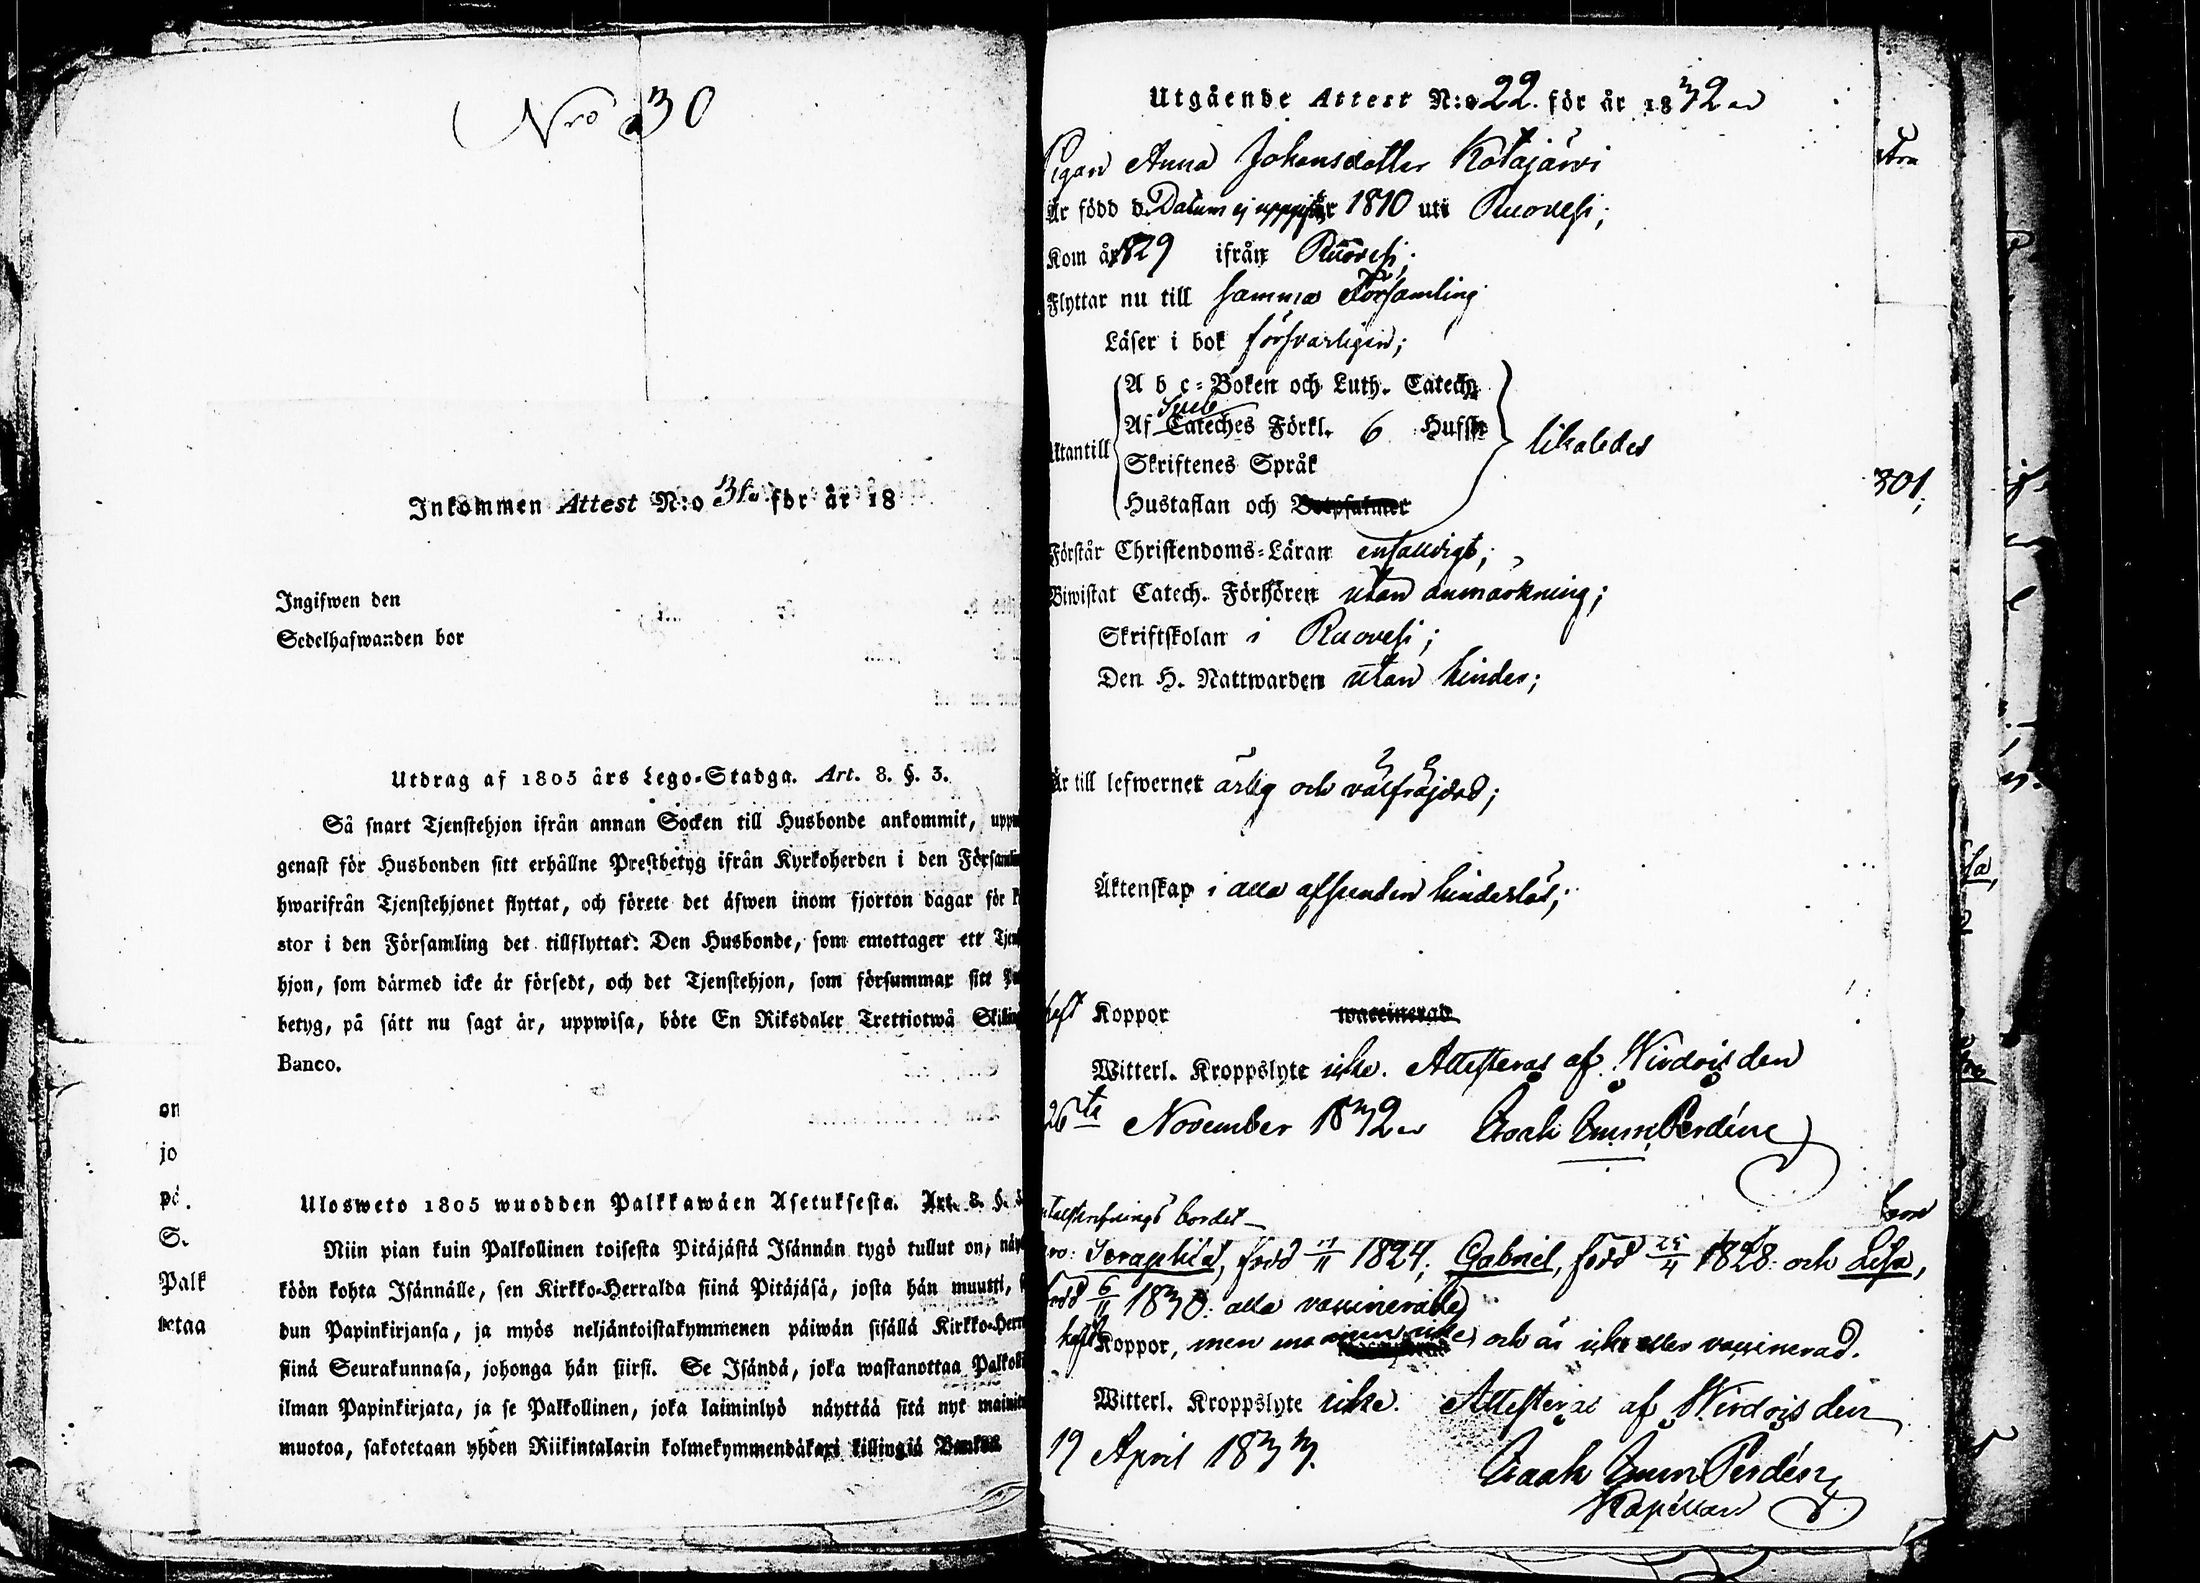 Nro 30
Inkommen Attest N:o 31. för år 18
Ingifwen den
Sedelhafwanden bor
Utdrag af 1805 års Lego-Stadga. Art. 8. §. 3.
Så snart Tjenstehjon ifrån annan Socken till Husbonde ankommit,
genast för Husbonden sitt erhållne Prestbetyg ifrån Kyrkoherden i den
hwarifrån Tjenstehjonet flyttat, och förete det äfwen inom fjorton dagar för
stor i den Församling det tillflyttat: Den Husbonde, som emottager ett
hjon, som därmed icke är försedt, och det Tjenstehjon, som försummar sitt
betyg, på sätt nu sagt är, uppwisa, böte En Riksdaler Trettiotwå
Banco.
on
jo
på
S.
Palk
tetaa
Ulosweto 1805 wuodden Palkkawäen Asetuksesta. Art. 8. §. 3
Niin pian kuin Palkollinen toisesta Pitäjästä Isännän tygö tullut on,
köön kohta Isännälle, sen Kirkko-Herralda siinä Pitäjäsä, josta hän muutti,
dun Papinkirjansa, ja myös neljäntoistakymmenen päiwän sisällä
siinä Seurakunnasa, johonga hän siirsi. Se Isändä, joka wastanottaa
ilman Papinkirjata, ja se Palkollinen, joka laiminlyö näyttää sitä nyt
muotoa, sakotetaan yhden Riikintalarin kolmekymmendäkaxi killingiä
Utgående Attest N:o 22. för år 1832
Pigan Anna Johansdotter Kotajärvi
Är född d. Datum ej 1810 uti Ruovesi;
Kom år 1829 ifrån Ruovesi;
Flyttar nu till samma Församling
Läser i bok försvarligen;
A b c-Boken och Luth. Catech.
Af Cateches Förkl. 6 Hufst
Utantill
Skriftenes Språk
likaledes
Hustaflan och Botpsalmer
Förstår Christendoms-Läran enfalldigt;
Biwistat Catech. Förhören utan anmärkning;
Skriftskolan i Ruovesi;
Den H. Nattwarden utan hinder;
Är till lefwernet ärlig och välfräjdad;
Äktenskap i alla afseenden hinderlös;
haft Koppor waccinerad
Witterl. Kroppslyte icke. Attesteras af Wirdois den
26te November 1832 Isaak Emm. Perdén
bord
Seraphia, född 1824; Gabriel, född 25/4 1828. och Lisa,
född 6/11 1830. alla vaccinerade
haft Koppor, men och är icke eller vaccinerad.
Witterl. Kroppslyte icke. Attesteras af Wirdois den
19 April 1833.
Isaak Emm Perdén
Kapellan
301,